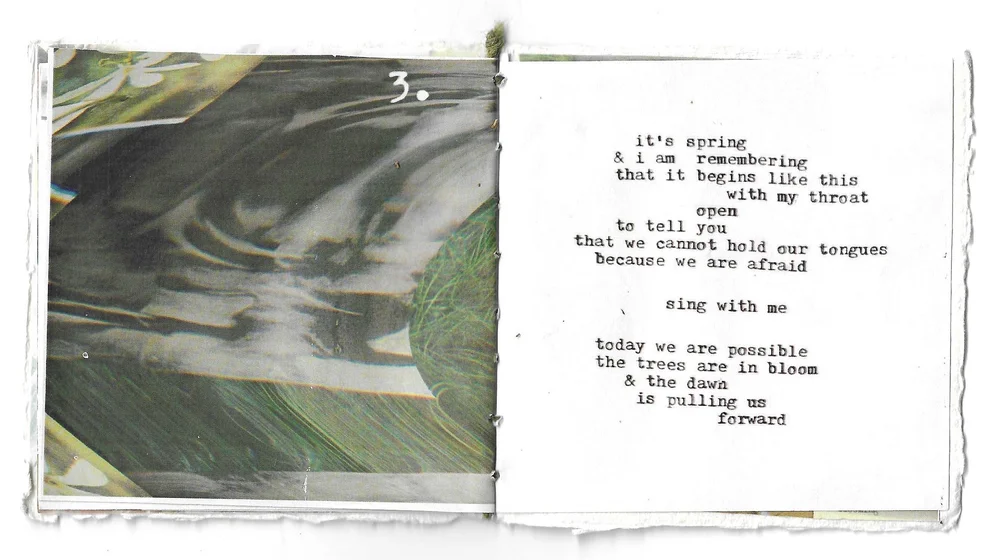 3.
it's spring
& i am remembering
that it begins like this
with my throat
open
to tell you
that we cannot hold our tongues
because we are afraid
sing with me
today we are possible
the trees are in bloom
& the dawn
is pulling us
forward